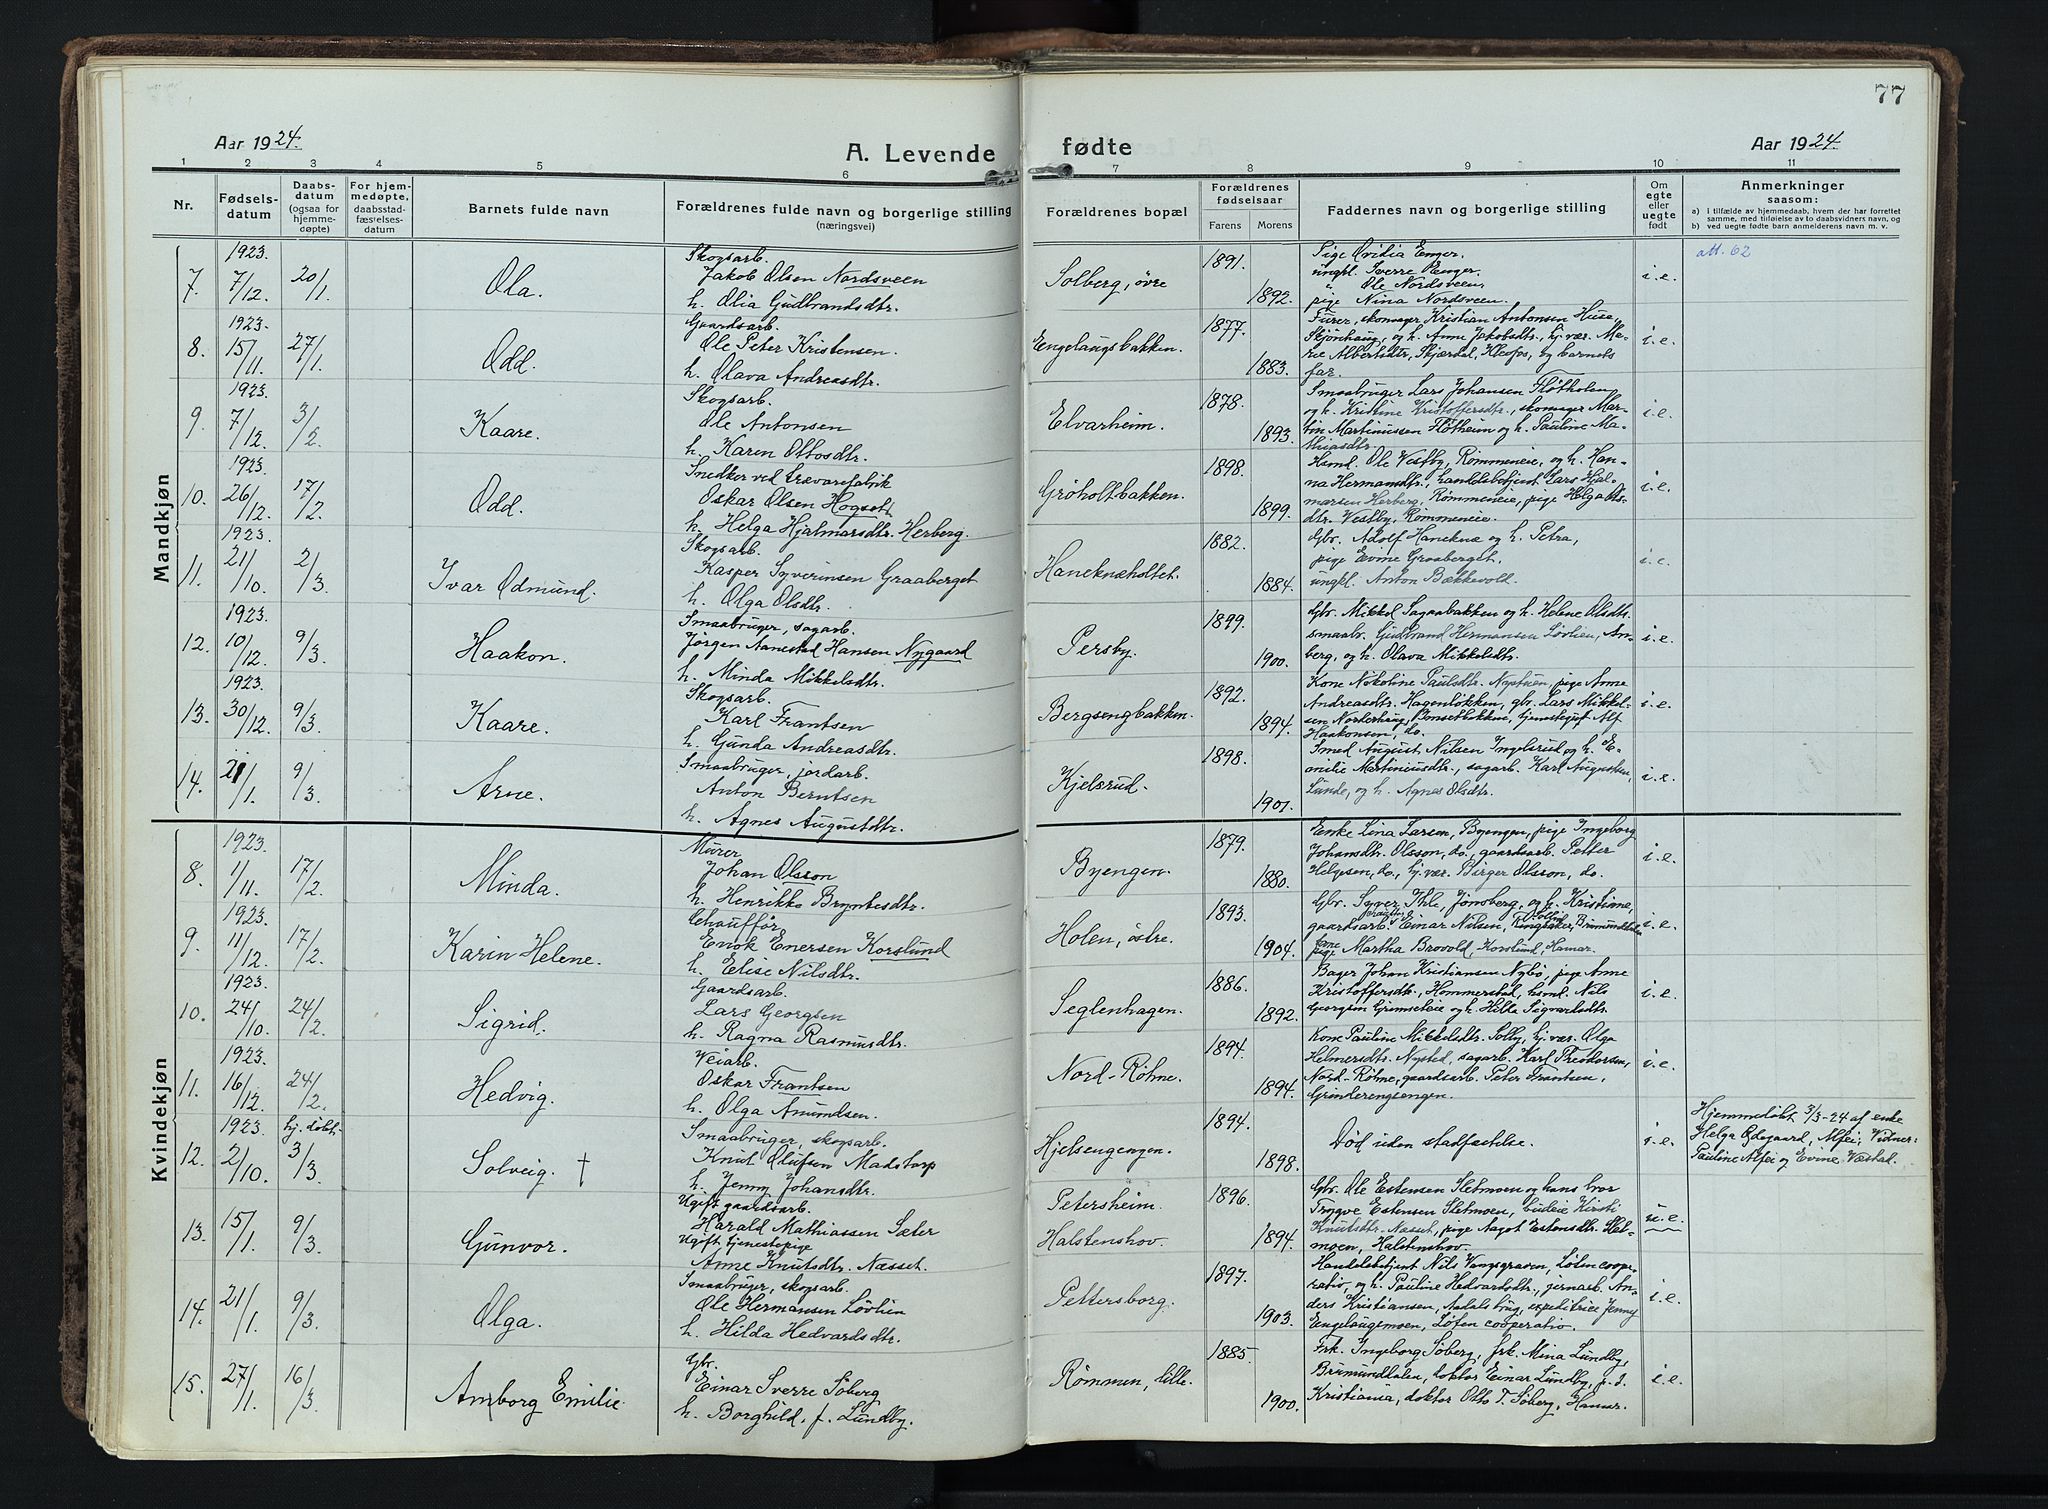 77
Aar 1924.
A. Levende fødte
Aar 1924.
1 2 3 4 5 6 7 8 9 10 11
Nr.
Fødsels-
datum
Daabs-
datum
(ogsaa for
hjemme-
døpte)
For hjem-
medøpte,
daabsstad-
fæstelses-
datum
Barnets fulde navn
Forældrenes fulde navn og borgerlige stilling
(næringsvei)
Forældrenes bopæl
Forældrenes
fødselsaar
Farens Morens
Faddernes navn og borgerlige stilling
Om
egte
eller
uegte
født
Anmerkninger
saasom:
a) i tilfælde av hjemmedaab, hvem der har forrettet
samme, med tilføielse av to daabsvidners navn, og
b) ved uegte fødte barn anmelderens navn m. v.
Mandkjøn
7. 1923. 7/12. 20/1. Ola.
Skogsarb.
Jakob Olsen Nordsveen
h. Olia Gudbrandsdtr.
Solberg, øvre 1891. 1892.
Pige Ovidia Enger.
ungkl. Sverre Enger.
" Ole Nordsveen,
pige Nina Nordsveen.
i.e.
att. 62
8. 1923. 15/11. 27/1. Odd.
Gaardsarb.
Ole Peter Kristensen.
h. Olava Andreasdtr.
Engelaugsbakken. 1877. 1883.
Furer, skomager Kristian Antonsen Huse,
Skjønhaug, og h. Anne Jakobsdtr., hj. vær. Ma-
rie Albertsdtr. Skjærdal, Kleofos, og barnets
far.
i.e.
9. 1923. 7/12. 3/2. Kaare.
Skogsarb.
Ole Antonsen
h. Karen Ottosdtr.
Elvarheim. 1878. 1893.
Smaabruger Lars Johansen Fløtholen
og h. Kristine Kristoffersdtr., skomager Mar-
tin Martinussen Fløtheim og h. Pauline Ma-
thiasdtr.
i.e.
10. 1923. 26/12. 17/2. Odd.
Snedker ved trævarefabrik
Oskar Olsen Hogset
h. Helga Hjalmarsdtr. Herberg.
Grøholtbakken. 1898. 1899.
Hsmd. Ole Vestby, Rømmeneie, og h. Han-
na Hermansdtr., handelsbetjent Lars Hjal-
marsen Herberg, Rømmeneie, pige Helga Ols-
dtr. Vestby, Rømmeneie.
i.e.
11. 1923. 21/10. 2/3. Ivar Odmund.
Skogsarb.
Kasper Syverinsen Graaberget
h. Olga Olsdtr.
Haneknæholtet. 1882. 1884.
Gbr. Adolf Haneknæ og h. Petra,
pige Evine Graaberget,
ungkl. Anton Bækkevold.
i.e.
12. 1923. 10/12. 9/3. Haakon.
Smaabruger, sagarb.
Jørgen Aanestad Hansen Nygaard
h. Minda Mikkelsdtr.
Persby. 1899. 1900.
Gbr. Mikkel Sagaabakken og h. Helene Olsdtr.
smaabr. Gudbrand Hermansen Løvlien, Am-
berg, og h. Olava Mikkelsdtr.
i.e.
13. 1923. 30/12. 9/3. Kaare.
Skogsarb.
Karl Frantsen
h. Gunda Andreasdtr.
Bergsengbakken. 1892. 1894.
Kone Nikoline Paulsdtr. Nystuen, pige Anne
Andreasdtr. Hagenløkken, gbr. Lars Mikkel-
sen Norderhaug, Bensetbakken, tjenestegut Alf
Haakonsen, do.
i.e.
14. 21/1. 9/3. Arne.
Smaabruger, jordarb.
Anton Berntsen
h. Agnes Augustdtr.
Kjelsrud. 1898. 1901.
Smed August Nilsen Ingelsrud og h. E-
milie Martiniusdtr., sagarb. Karl Augustsen,
Lunde, og h. Agnes Olsdtr.
i.e.
Kvindekjøn
8. 1923. 1/11. 17/2. Minda.
Murer
Johan Olsson
h. Henrikke Bryntesdtr.
Byengen. 1879. 1880.
Enke Lina Larsen, Byengen, pige Ingeborg
Johansdtr. Olsson, do., gaardsarb. Petter
Helgesen, do., hj. vær. Birger Olsson, do.
i.e.
9. 1923. 11/12. 17/2. Karin Helene.
Chauffør
Enok Enersen Korslund
h. Elise Nilsdtr.
Holen, østre. 1893. 1904.
Gbr. Syver Ihle, Jønsberg, og h. Kristiane,
gaardsarb. Einar Nilsen, Ringsaker, Brumunddalen
pige Martha Brovold, Korslund, Hamar.
i.e.
10. 1923. 24/10. 24/2. Sigrid.
Gaardsarb.
Lars Georgsen
h. Ragna Rasmusdtr.
Seglenhagen. 1886. 1892.
Bager Johan Kristiansen Nybø, pige Anne
Kristoffersdtr., Hommerstad, hsmd. Nils
Georgsen Grimseteie og h. Hilda Sigvartsdtr.
i.e.
11. 1923. 16/12. 24/2. Hedvig.
Veiarb.
Oskar Frantsen
h. Olga Amundsen.
Nord-Røhne. 1894. 1894.
Kone Pauline Mikkelsdtr. Solby, hj. vær. Olga
Helmersdtr. Nysted, sagarb. Karl Theodorsen,
Nord-Røhne, gaardsarb. Peter Frantsen,
Grinderengsengen.
i.e.
12. 1923. 2/10. hj. døbt 3/3. Solveig. †
Smaabruger, skogsarb.
Knut Olufsen Madstorp
h. Jenny Johansdtr.
Hjelsengengen. 1894. 1898.
Død uden stadfæstelse.
i.e.
Hjemmedøbt 3/3-24 af enke
Helga Ødegaard, Alfei, Vidner:
Pauline Alfei og Evine Væstad.
13. 15/1. 9/3. Gunvor.
Ugift gaardsarb.
Harald Mathiassen Sæter
Ugift tjenestepige
Anne Knutsdtr. Næsset.
Petersheim. 1896.
Halstenshov. 1894.
Gbr. Ole Estensen Sletmoen og hans bror
Trygve Estensen Sletmoen, budeie Kirsti
Knutsdtr. Næsset, pige Aagot Estensdtr. Slet-
moen, Halstenshov.
u.e.
14. 21/1. 9/3. Olga.
Smaabruger, skogsarb.
Ole Hermansen Løvlien
h. Hilda Hedvardsdtr.
Pettersborg. 1897. 1903.
Handelsbetjent Nils Vangsgraven, Løten coope-
ratio, og h. Pauline Hedvardsdtr., jernarb. An-
ders Kristiansen, Aadals brug, expeditrice Jenny
Engelaugsmoen, Løten cooperatio.
i.e.
15. 27/1. 16/3. Amborg Emilie.
Gbr.
Einar Sverre Søberg
h. Borghild, f. Lundby.
Rømmen, lille. 1885. 1900.
Frk. Ingeborg Søberg, frk. Mina Lundby,
Brumunddalen, doktor Einar Lundby, p. t.
Kristiania, doktor Otto T. Søberg, Hamar.
i.e.